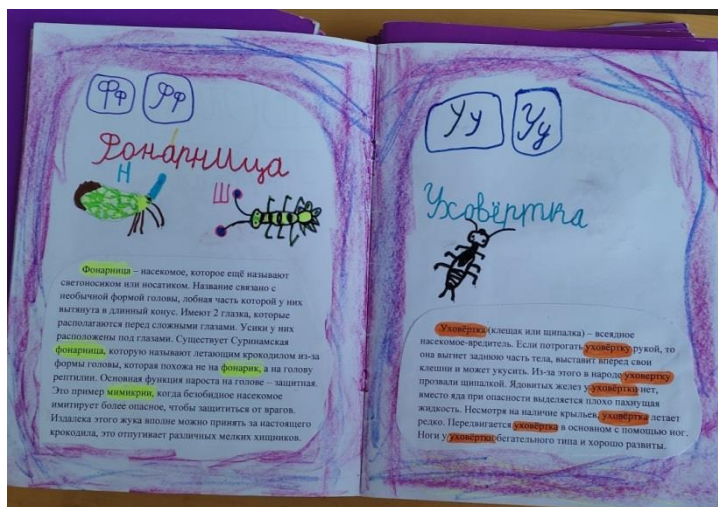 Фф Фф
Фонарница
Н
Ш
Фонарница – насекомое, которое ещё называют
светоносиком или носатиком. Название связано с
необычной формой головы, лобная часть которой у них
вытянута в длинный конус. Имеют 2 глазка, которые
располагаются перед сложными глазами. Усики у них
расположены под глазами. Существует Суринамская
фонарница, которую называют летающим крокодилом из-за
формы головы, которая похожа не на фонарик, а на голову
рептилии. Основная функция нароста на голове – защитная.
Это пример мимикрии, когда безобидное насекомое
имитирует более опасное, чтобы защититься от врагов.
Издалека этого жука вполне можно принять за настоящего
крокодила, это отпугивает различных мелких хищников.
Уу Уу
Уховёртка
Уховёртка (клещак или щипалка) – всеядное
насекомое-вредитель. Если потрогать уховёртку рукой, то
она выгнет заднюю часть тела, выставит вперед свои
клешни и может укусить. Из-за этого в народе уховертку
прозвали щипалкой. Ядовитых желез у уховёртки нет,
вместо яда при опасности выделяется плохо пахнущая
жидкость. Несмотря на наличие крыльев, уховёртка летает
редко. Передвигается уховёртка в основном с помощью ног.
Ноги у уховёртки бегательного типа и хорошо развиты.